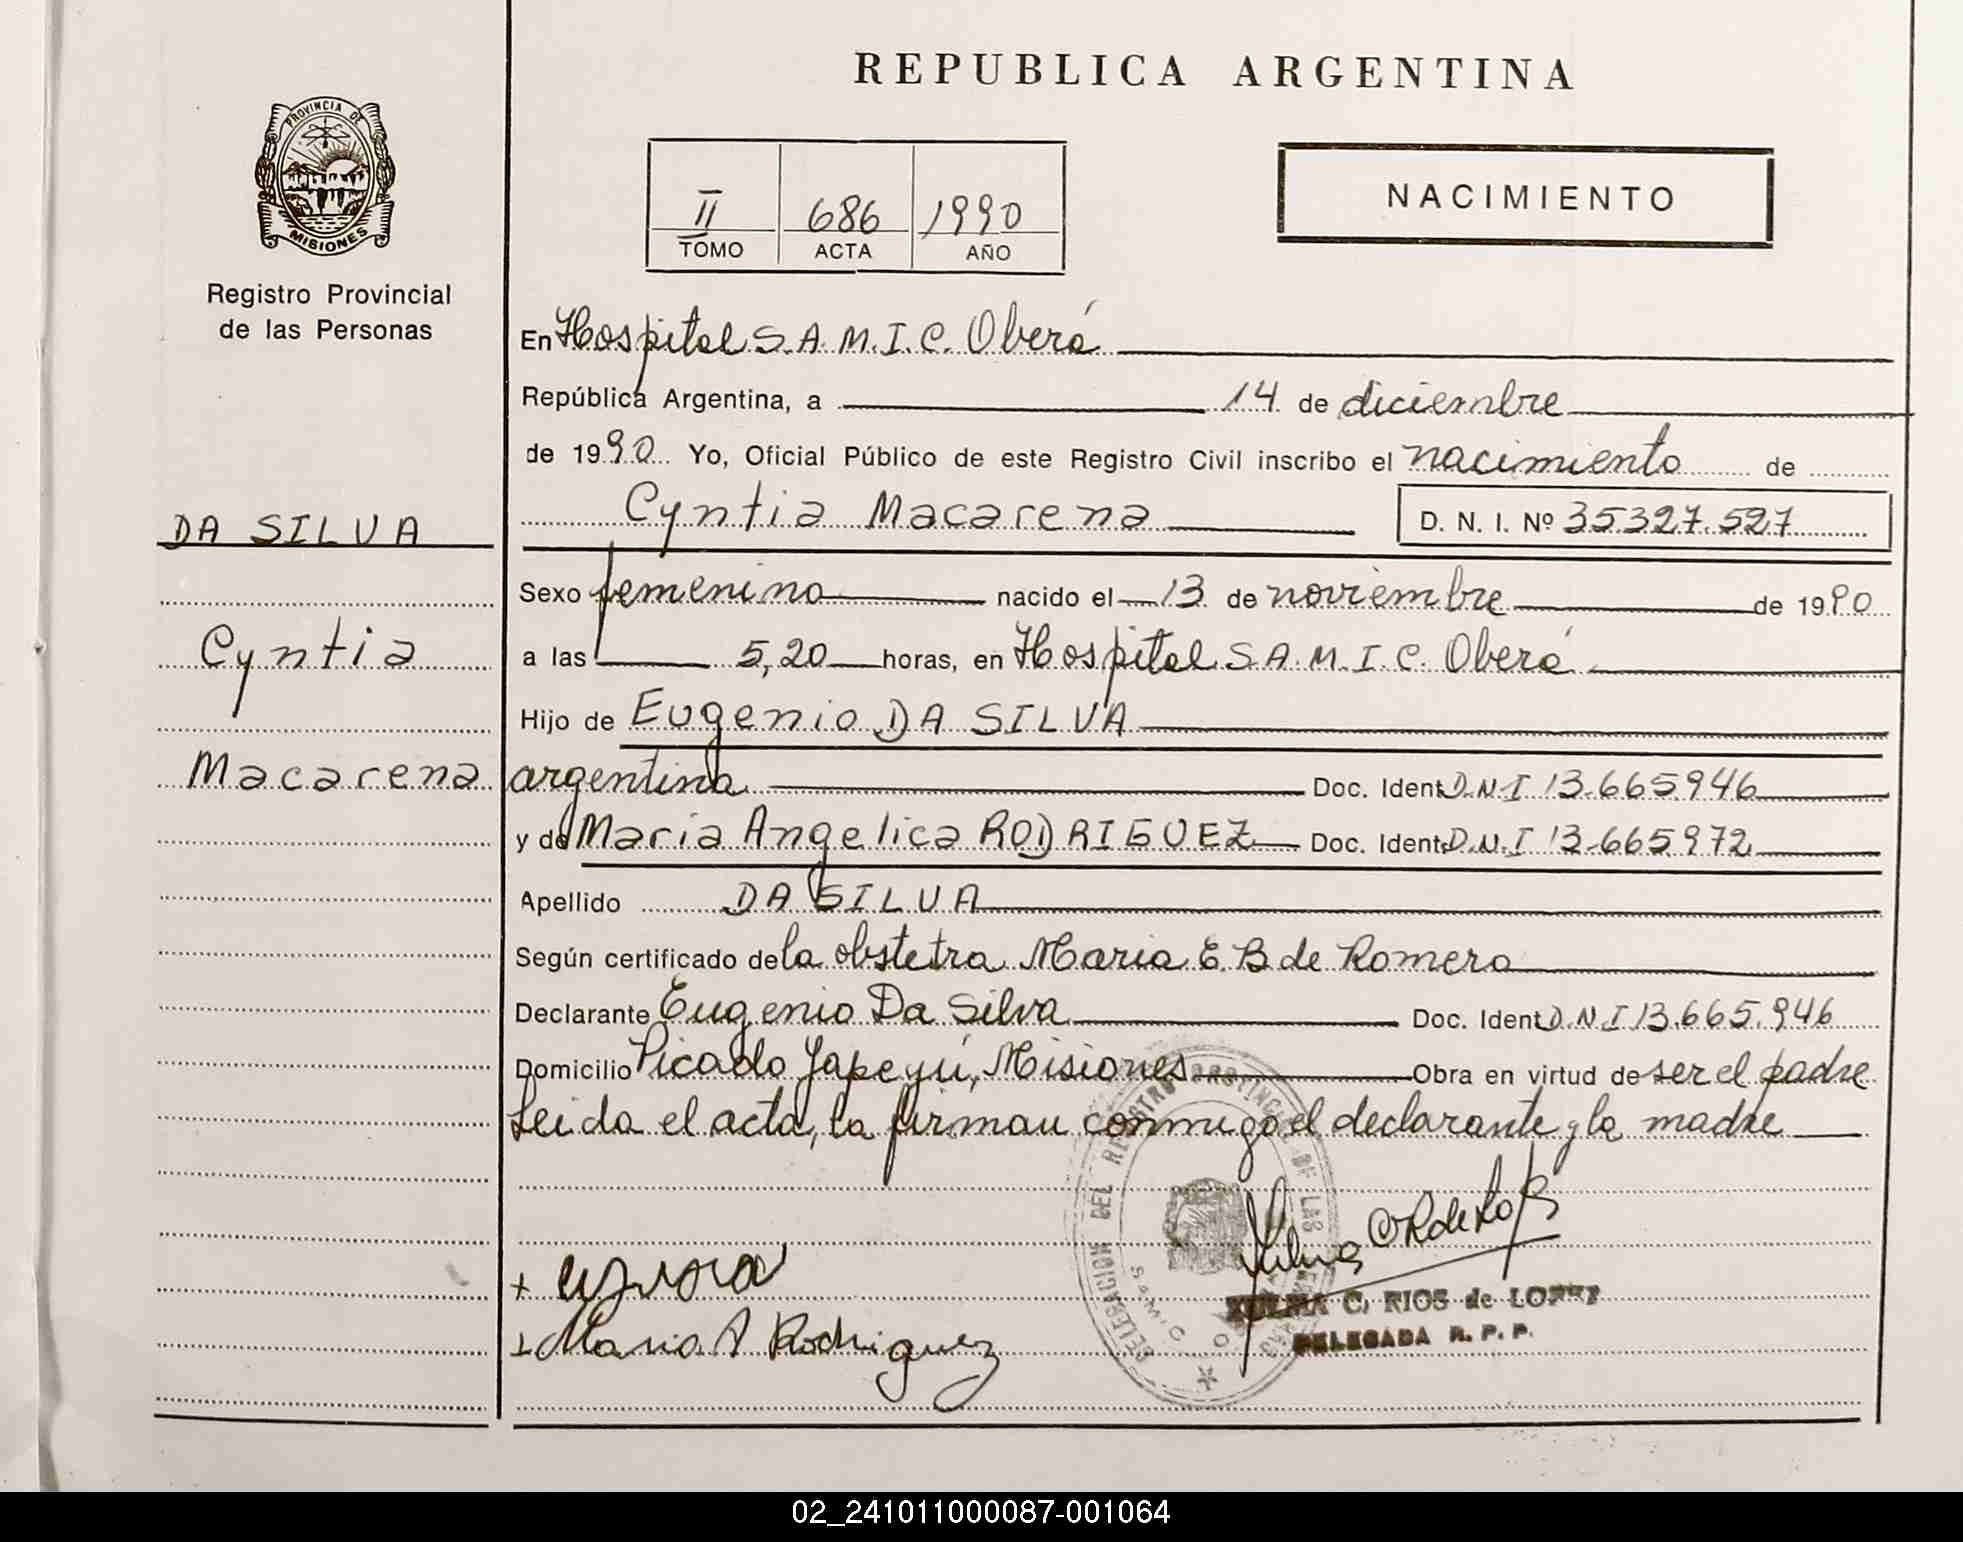 REPUBLICA ARGENTINA
PROVINCIA DE
MISIONES
Registro Provincial
de las Personas
II 686 1990
TOMO ACTA AÑO
NACIMIENTO
En Hospital S.A.M.I.C. Oberá
República Argentina, a 14 de diciembre
de 1990 Yo, Oficial Público de este Registro Civil inscribo el nacimiento de
Cyntia Macarena D. N. I. Nº 35.327.527
DA SILVA
Cyntia
Macarena
Sexo femenino nacido el 13 de noviembre de 1990
a las 5,20 horas, en Hospital S.A.M.I.C. Oberá
Hijo de Eugenio DA SILVA
argentina Doc. Ident. D.N.I 13.665.946
y de Maria Angelica RODRIGUEZ Doc. Ident. D.N.I 13.665.972
Apellido DA SILVA
Según certificado de la obstetra Maria E. B de Romero
Declarante Eugenio Da Silva Doc. Ident. D.N.I 13.665.946
Domicilio Picada Yapeyú, Misiones Obra en virtud de ser el padre
Leida el acta, la firman conmigo el declarante y la madre
DELEGACION DEL REGISTRO PROVINCIAL DE LAS
S.A.M.I.C. O
Maria A Rodriguez
C. RIOS de LOPEZ
DELEGADA R. P. P.
02_241011000087-001064